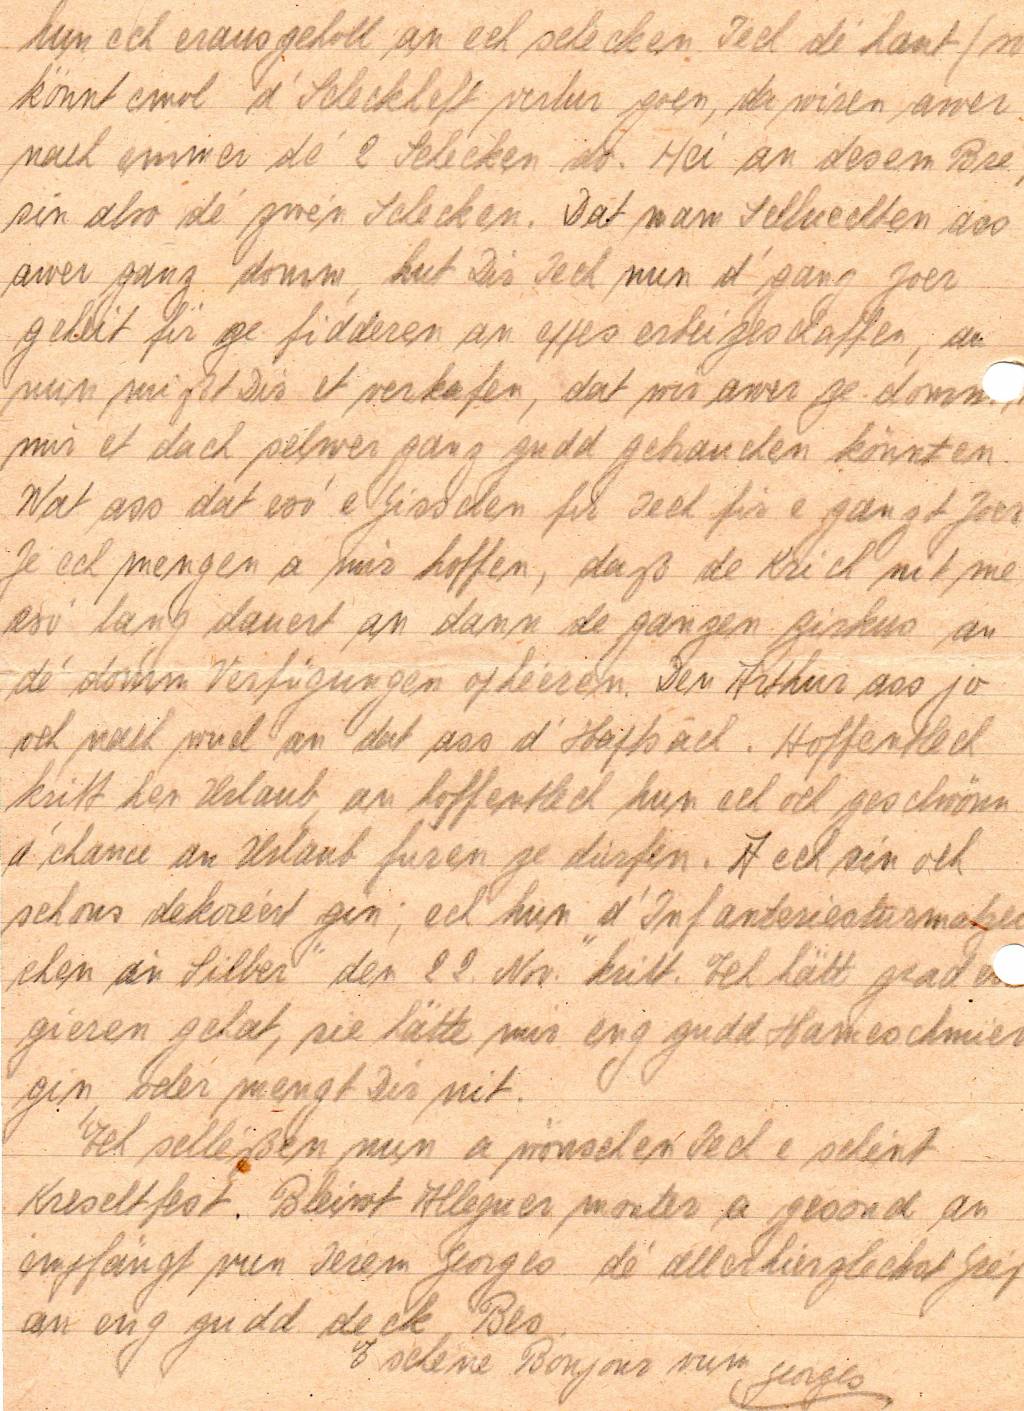 hun ech erausgeholl an ech schecken Iech dé haut (so
könnt emol d' Scheckheft verlur goen, da wiren awer
nach ëmmer dé 2 Schecken do. Hei an desem Bre
sin also dé zwen Schecken. Dat vum Schluechten ass
awer ganz domm, hut Dir Iech nun d' ganz Joer
geheit fir ze fidderen an eppes erbeizeschaffen, an
nun mißt Dir et verkafen, dat wir awer ze domm,
mir et dach selwer ganz gudd gebrauchen könnten.
Wat ass dat esó e Gisschen fir Iech fir e ganzt Joer
Je ech mengen a mir hoffen, daß de Krich nit mé
esó lang dauert an dann de ganzen zirkus an
dé domm Verfügungen ophéieren. Den Arthur ass jo
och nach wuel an dat ass d' Haaptsäch. Hoffentlech
kritt hen Urlaub, an hoffentlech hun ech och geschwönn
d'chance an Urlaub fueren ze dürfen. A ech sin och
schons dekoréert gin; ech hun d' Infanteriesturmabzei
chen in Silber" den 22. Nov." kritt. Ech hätt grad
gieren gehat, sie hätte mir eng gudd Hameschmier
gin oder mengt Dir nit.
Ech schleßen nun a wönschen Iech e schint
Kreschtfest. Bleiwt Alleguer monter a gesond an
empfängt vun Ierem Georges dé allerhierzlechst Gréiß
an eng gudd deck Bes
E schene Bonjour vum Georges